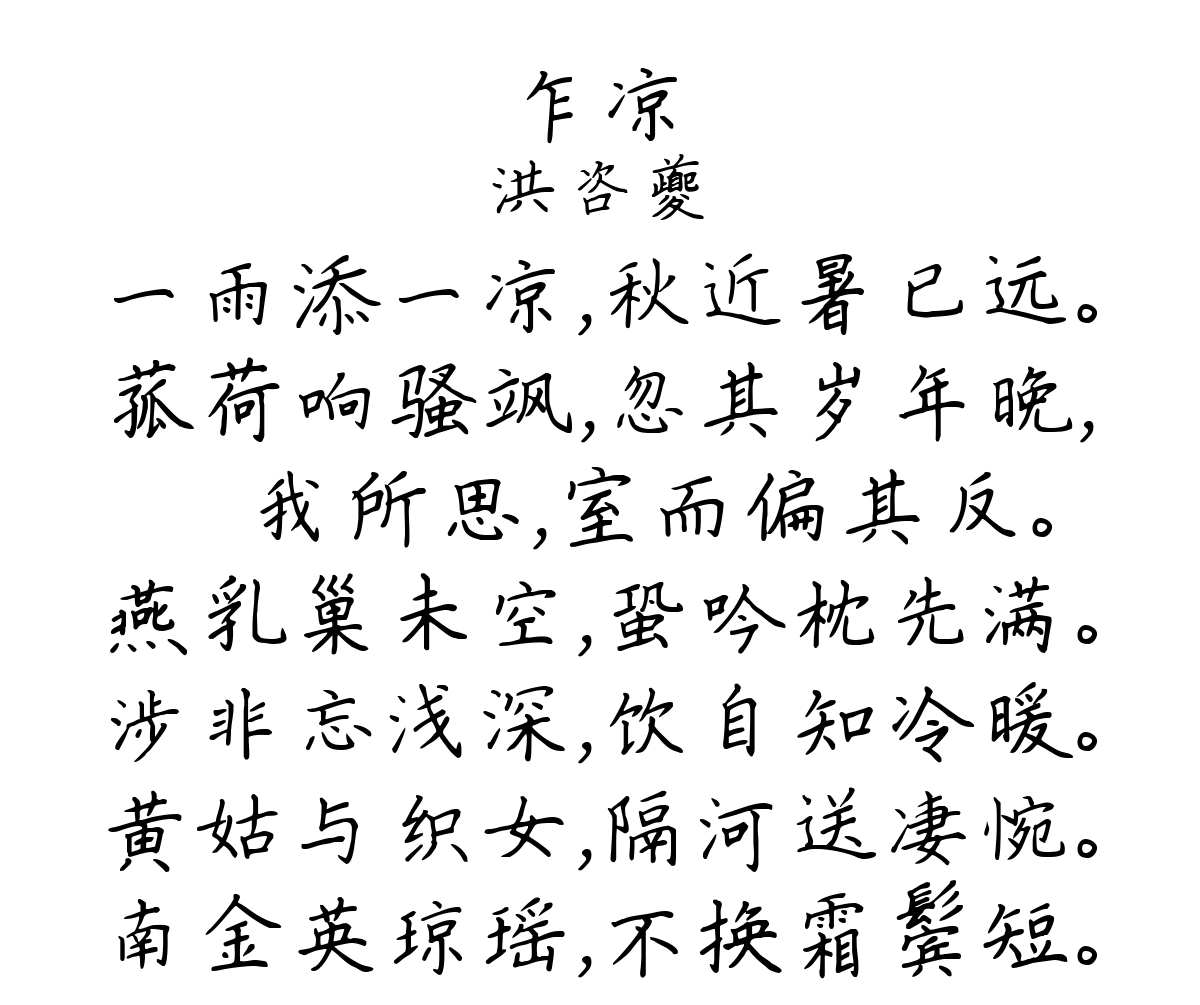 乍凉
洪咨夔
一雨添一凉,秋近暑已远。
菰荷响骚飒,忽其岁年晚,
我所思,室而偏其反。
燕乳巢未空,蛩吟枕先满。
涉非忘浅深,饮自知冷暖。
黄姑与织女,隔河送凄惋。
南金英琼瑶,不换霜鬓短。